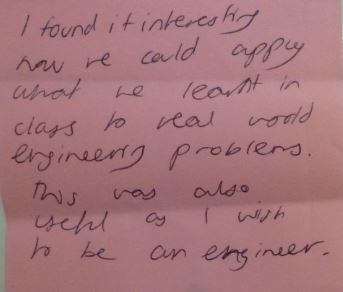 I found it interesting
how we could apply
what we learnt in
class to real world
engineering problems.
This was also
useful as I wish
to be an engineer.